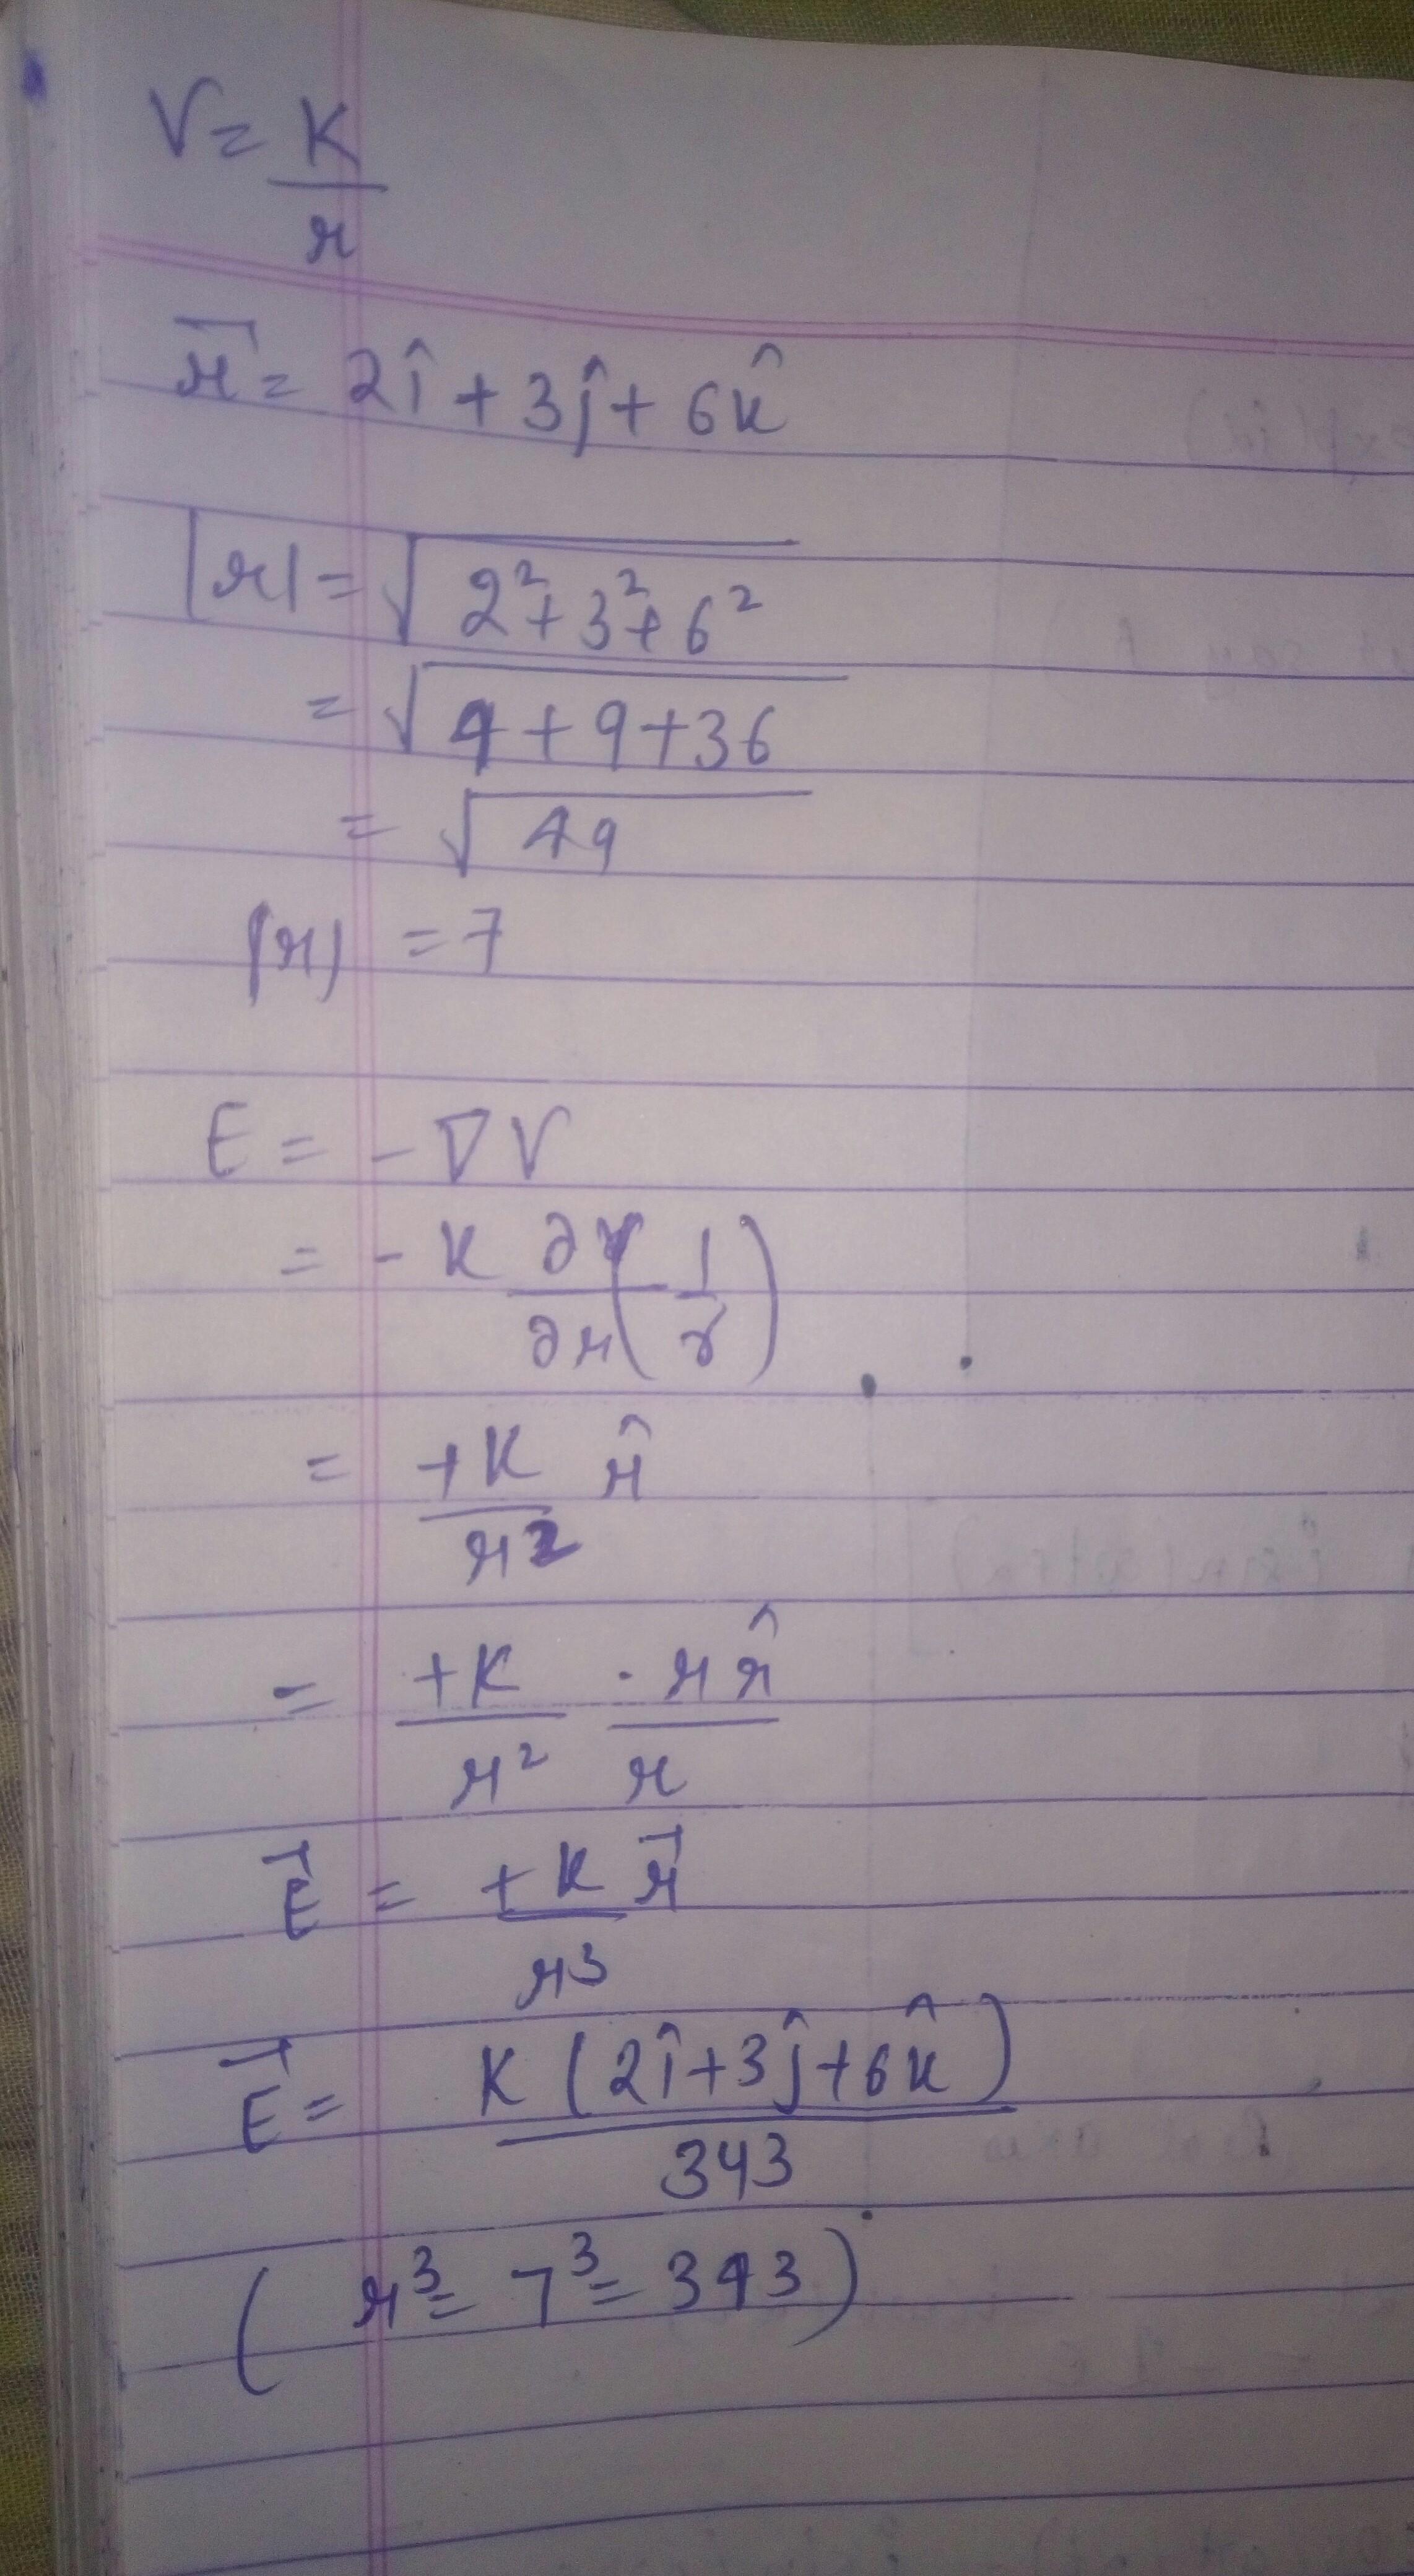 V = K/r
r⃗ = 2î + 3ĵ + 6k̂
|r| = √(2² + 3² + 6²)
= √(4 + 9 + 36)
= √49
|r| = 7
E = - ∇V
= - K ∂/∂r (1/r)
= +K/r² r̂
= +K/r² · r r̂/r
E⃗ = +K r⃗/r³
E⃗ = K (2î + 3ĵ + 6k̂)/343
( r³ = 7³ = 343 )